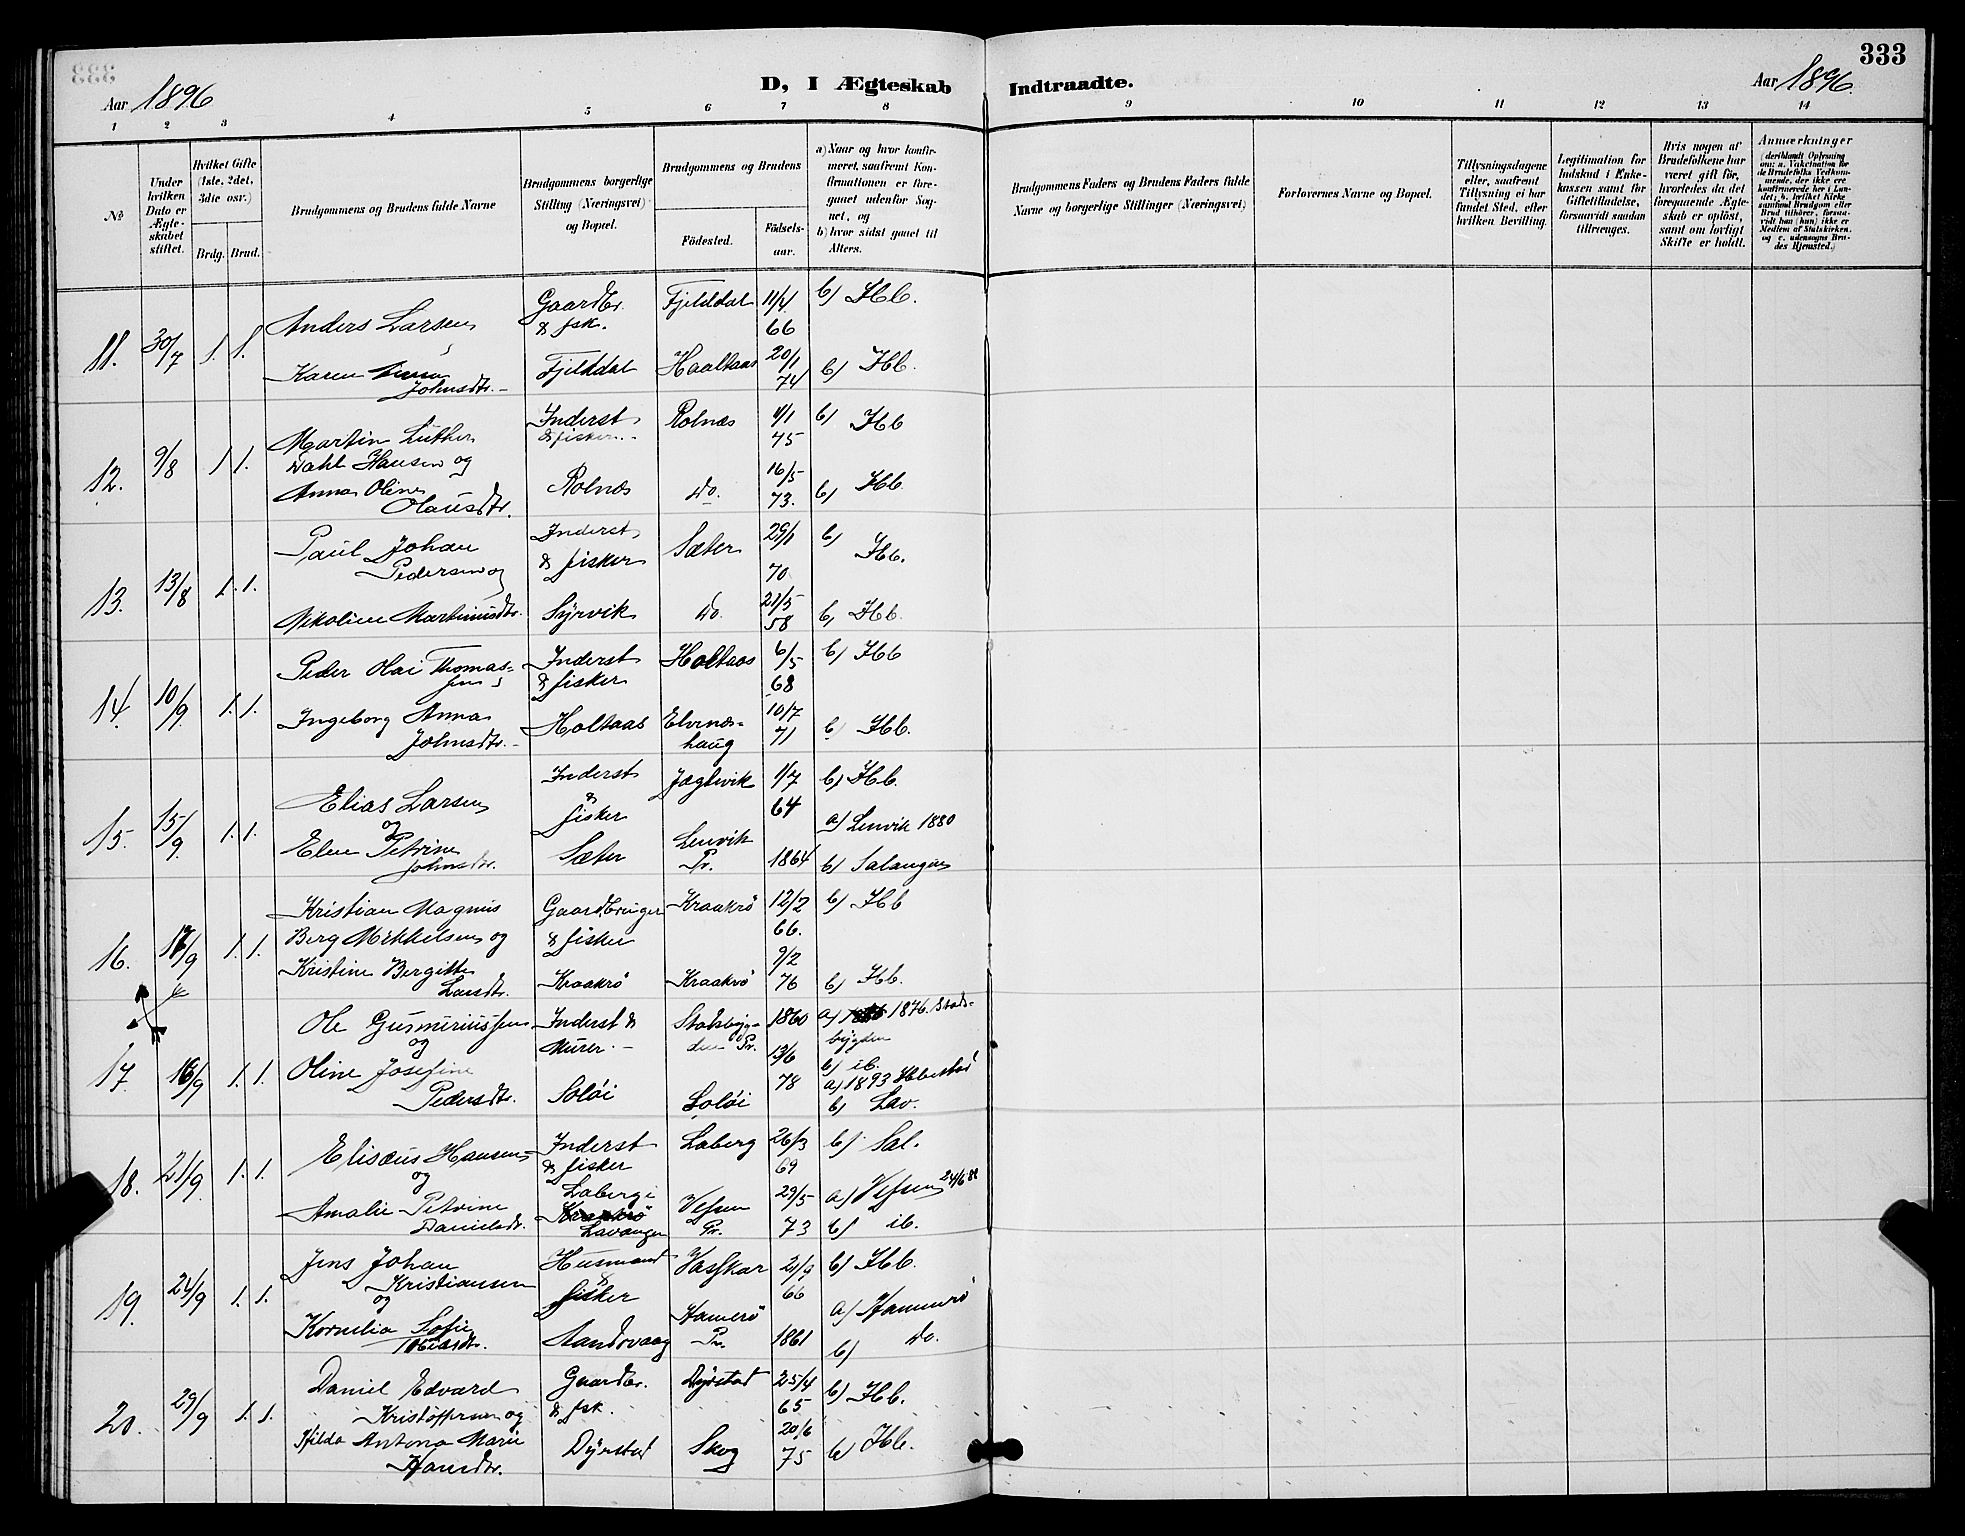 333
Aar 1896
D, I Ægteskab Indtraadte.
Aar 1896.
1 2 3 4 5 6 7 8 9 10 11 12 13 14
№
Under hvilken Dato er Ægteskabet stiftet.
Hvilket Gifte (1ste, 2det, 3die osv.)
Brdg. Brud.
Brudgommens og Brudens fulde Navne
Brudgommens borgerlige Stilling (Næringsvei) og Bopæl.
Brudgommens og Brudens
Fødested.
Fødselsaar.
a) Naar og hvor konfirmeret, saafremt Konfirmationen er foregaaet udenfor Sognet, og
b) hvor sidst gaaet til Alters.
Brudgommens Faders og Brudens Faders fulde Navne og borgerlige Stillinger (Næringsvei)
Forlovernes Navne og Bopæl.
Tillysningsdagene eller, saafremt Tillysning ei har fundet Sted, efter hvilken Bevilling.
Legitimation for Indskud i Enkekassen samt for Giftetilladelse, forsaavidt saadan tiltrænges.
Hvis nogen af Brudefolkene har været gift før, hvorledes da det foregaaende Ægteskab er opløst, samt om lovligt Skifte er holdt.
Anmærkninger
(deriblandt Oplysning om: a. Vakcination for de Brudefolks Vedkommende, der ikke ere konfirmerede her i Landet; b. hvilket Kirkesamfund Brudgom eller Brud tilhører, forsaavidt han (hun) ikke er Medlem af Statskirken, og c. udensogns Brudes Hjemsted.)
11. 30/7 1. 1. Anders Larsen Gaardbr. & fsk. Fjelddal 11/4 66 b) Hb.
Karen Johnsdtr. Fjelddal Haaltaas 20/1 74 b) Hb.
12. 9/8 1 1. Martin Luther Dahl Hansen og Inderst & fisker Rolnæs 4/1 75 b) Hb
Anna Oline Olausdtr. Rolnæs do. 16/5 73. b) Hb
13. 13/8 1. 1. Paul Johan Pedersen og Inderst & fisker Sæter 29/1 70 b) Hb.
Nikoline Martinusdtr. Syrvik do. 21/5 58 b, Hb.
14. 10/9 1. 1. Peder Olai Thomassen Inderst & fisker Holtaas 6/5 68 b) Hb
Ingeborg Anna Johnsdtr. Holtaas Elvenæshaug 10/7 71 b) Hb.
15. 15/9. 1. 1. Elias Larsen og Inderst & fisker Jægtvik 1/7 64 b) Hb.
Elen Petrine Johnsdtr. Sæter Lenvik Pr. 1864 a) Lenvik 1880
b) Salangen
16. 17/9 1. 1. Kristian Magnus Berg Mikkelsen og Gaardbruger & fisker Kraakrö 12/2 66. b) Hb
Kristine Bergitte Larsdtr. Kraakrö Kraakrö 9/2 76 b) Hb.
17. 16/9 1. 1. Ole Gusmeriussen og Inderst & Murer. Stadsbygden Pr. 1860 a) 1876. Stadsbygden
b) ib.
Oline Josefine Pedersdtr. Soløi Soløi 13/6 78 a) 1893 Ibbestad
b) Lav.
18. 21/9. 1. 1. Elisæus Hansen og Inderst & fisker Laberg 26/3 69 b) Sal.
Amalie Petrine Danielsdtr. Laberg i Kraakrö Lavangen Vefsen Pr. 29/5 73 a) Vefsen 24/6 88
b) ib.
19. 24/9 1. 1. Jens Johan Kristiansen og Husmand & fisker Vasskar 21/9 66 b) Hb.
Kornelia Sofie Aandsvaag Hamerö Pr. 1861 a) Hamerö
b) do.
20. 29/9 1. 1. Daniel Edvard Kristoffersen og Gaardbr. & fsk. Dyrstad 25/4 65 b) Hb.
Hilda Antona Marie Hansdtr. Dyrstad Skog 20/6 75 b) Hb.